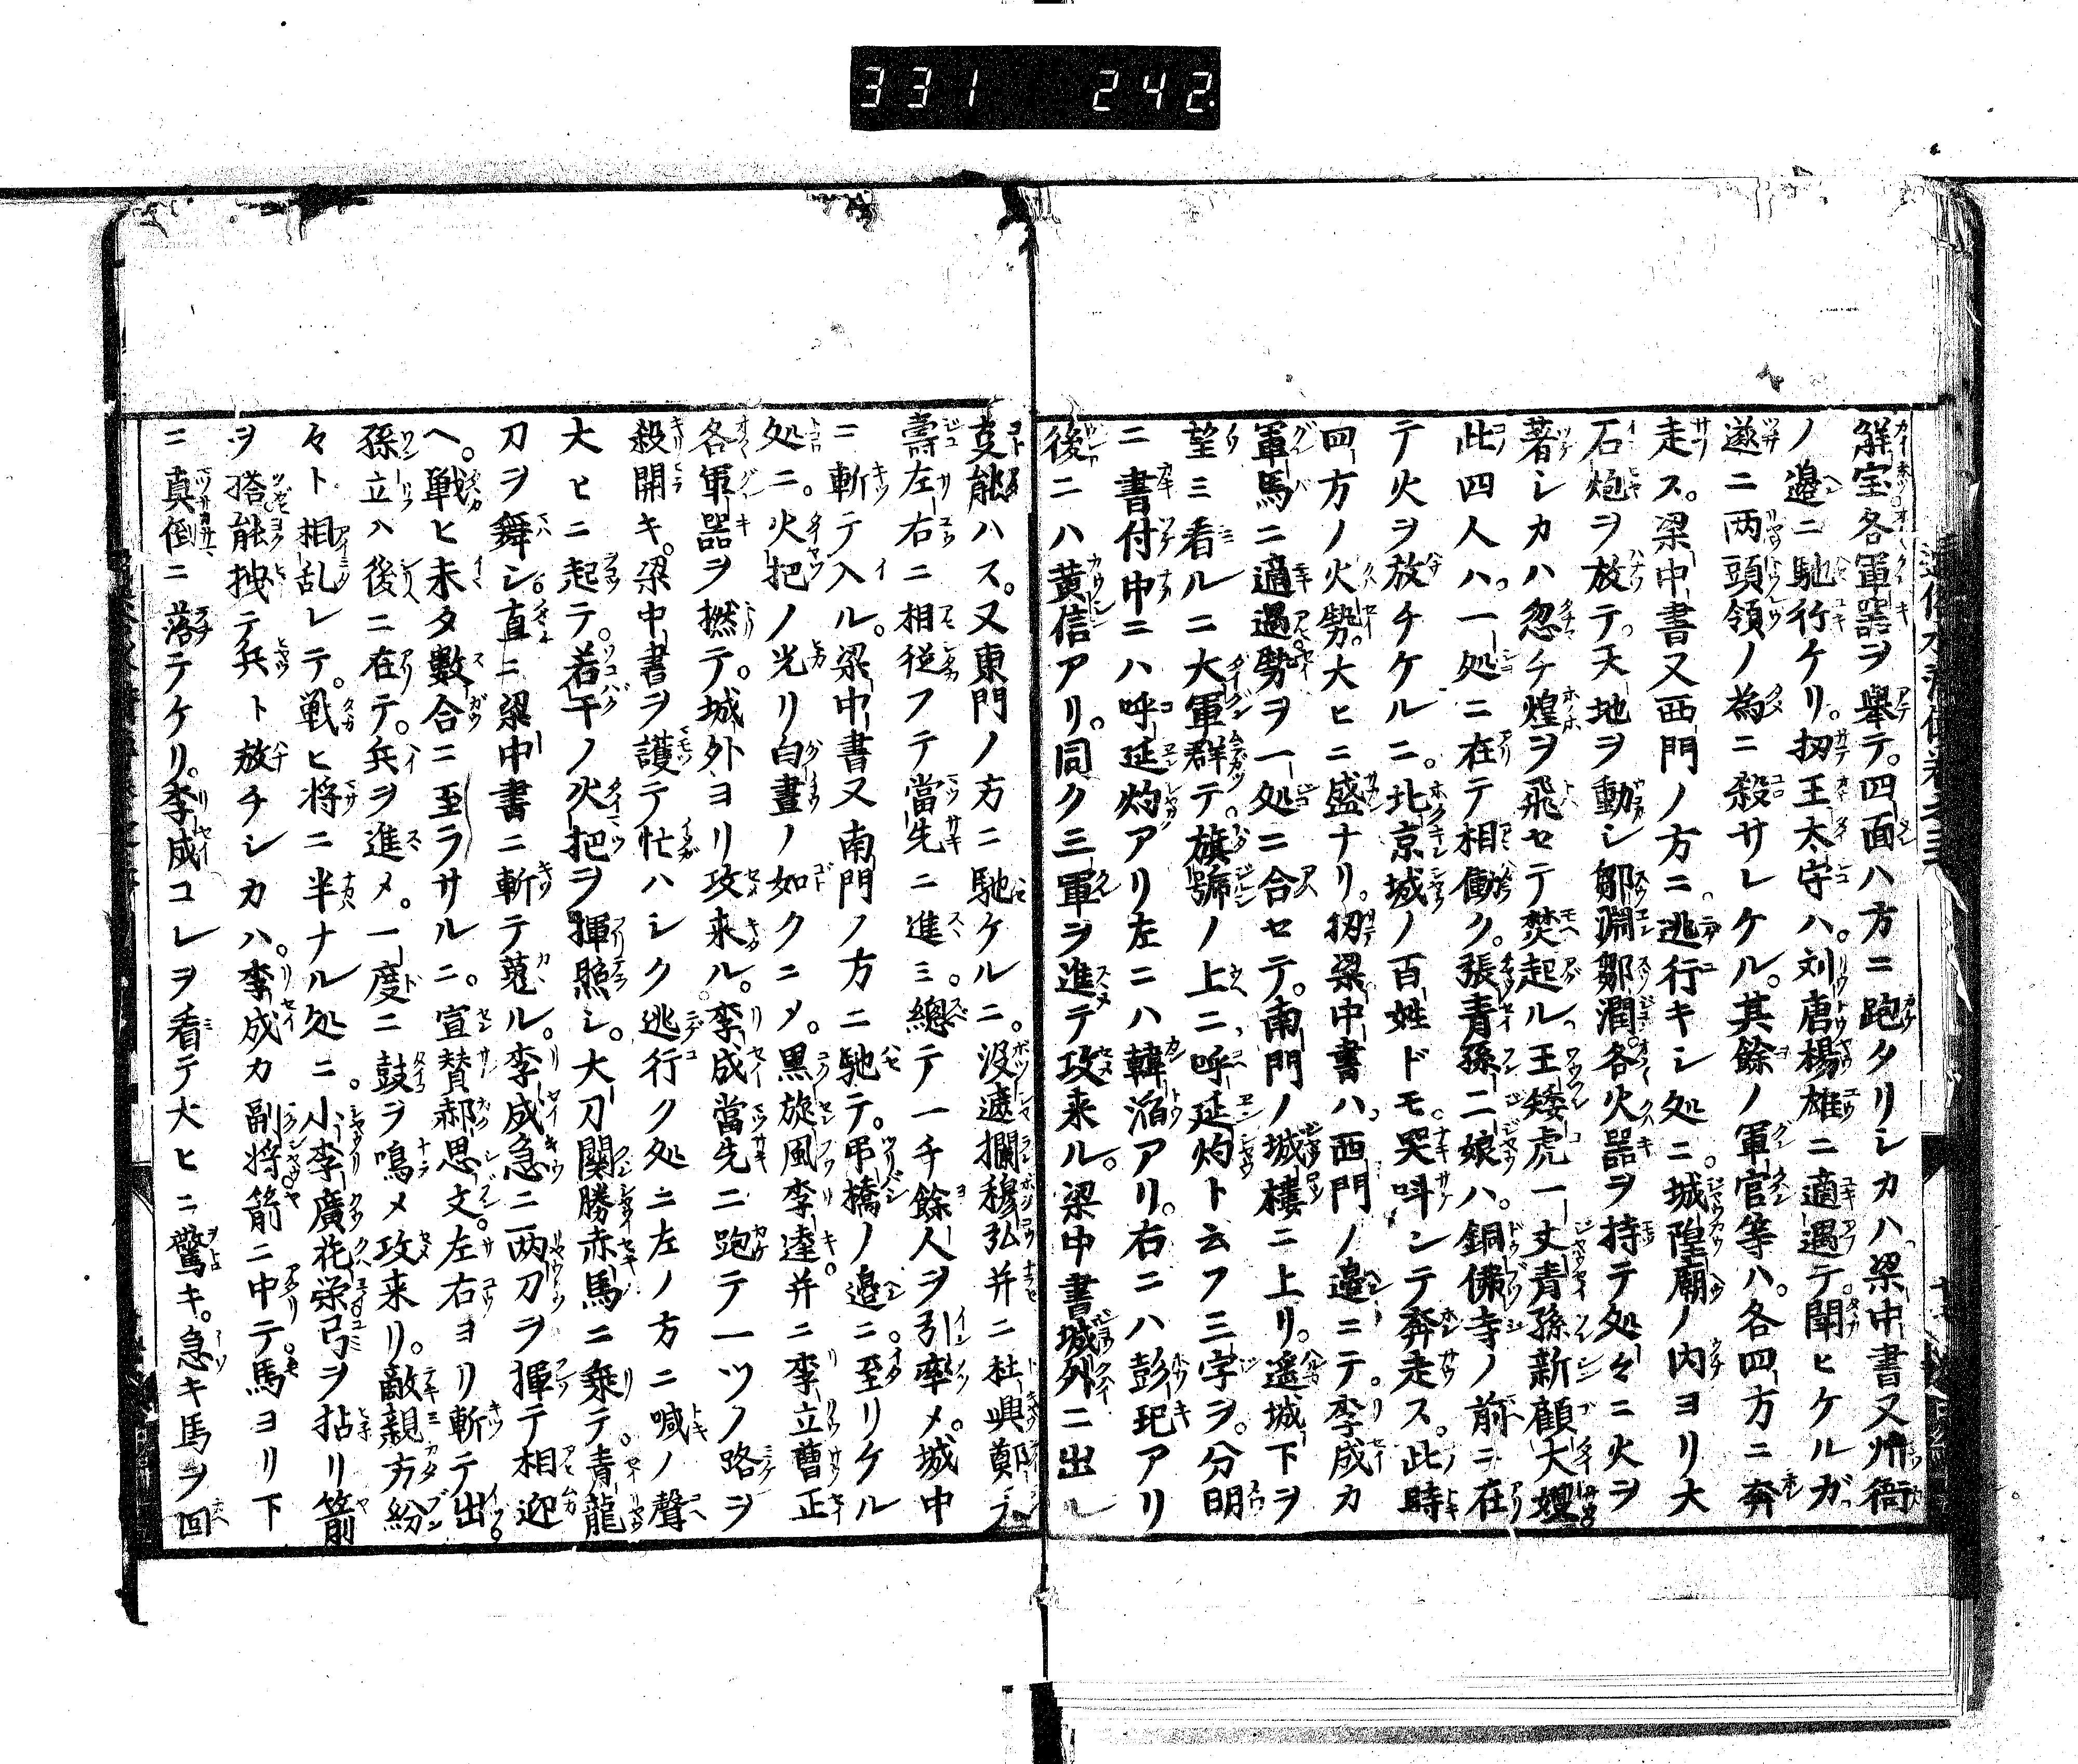 331 242
解宝各軍器ヲ舉テ。四面ハ方ニ跑タリシカハ梁中書又州衙
ノ邉ニ馳行ケリ。扨王太守ハ。刘唐楊雄ニ適遇テ。聞ヒケルガ
遂ニ两頭領ノ為ニ殺サレケル。其餘ノ軍官等ハ。各四方ニ奔
走ス。梁中書又西門ノ方ニ。逃行キシ処ニ。城隍廟ノ内ヨリ大
石炮ヲ放テ。天地ヲ動シ鄒淵鄒潤。各火器ヲ持テ処々ニ火ヲ
著シカハ忽チ煌ヲ飛セテ焚起ル王矮虎一丈青孫新顧大嫂
此四人ハ。一処ニ在テ相働ク。張青孫二娘ハ。銅佛寺ノ前ニ在
テ火ヲ放チケルニ。北京城ノ百姓ドモ。哭呌ンテ奔走ス。此時
四方ノ火勢。大ヒニ盛ナリ。扨梁中書ハ。西門ノ邉ニテ。李成カ
軍馬ニ適遇勢ヲ一処ニ合セテ。南門ノ城樓ニ上リ。遙城下ヲ
望ミ看ルニ大軍群テ。旗號ノ上ニ呼延灼ト云フ三字ヲ。分明
ニ書付中ニハ呼延灼アリ左ニハ韓滔アリ。右ニハ彭玘アリ
後ニハ黄信アリ。同ク三軍ヲ進テ攻来ル。梁中書城外ニ出
支能ハス。又東門ノ方ニ馳ケルニ。没遮攔穆弘并ニ杜興鄭天
壽左右ニ相従フテ當先ニ進ミ。總テ一千餘人ヲ引率メ。城中
ニ斬テ入ル。梁中書又南門ノ方ニ馳テ。吊橋ノ邉ニ。至リケル
処ニ。火把ノ光リ白晝ノ如クニメ。黒旋風李逵。并ニ李立曹正
各軍器ヲ撚テ。城外ヨリ攻来ル。李成當先ニ跑テ一ツノ路ヲ
殺開キ。梁中書ヲ護テ忙ハシク逃行ク処ニ左ノ方ニ喊ノ聲
大ヒニ起テ。若干ノ火把ヲ揮照シ。大刀関勝赤馬ニ乗テ。青龍
刀ヲ舞シ。直ニ梁中書ニ斬テ蒐ル。李成急ニ两刀ヲ揮テ相迎
ヘ。戦ヒ未タ數合ニ至ラサルニ。宣賛郝思文。左右ヨリ斬テ出
孫立ハ後ニ在テ。兵ヲ進メ。一度ニ鼓ヲ鳴メ攻来リ。敵親方紛
々ト相乱レテ。戦ヒ将ニ半ナル処ニ。小李廣花栄弓ヲ拈リ箭
ヲ搭能拽テ兵ト放チシカハ。李成カ副将箭ニ中テ。馬ヨリ下
ニ真倒ニ落テケリ。李成コレヲ看テ大ヒニ驚キ。急キ馬ヲ回